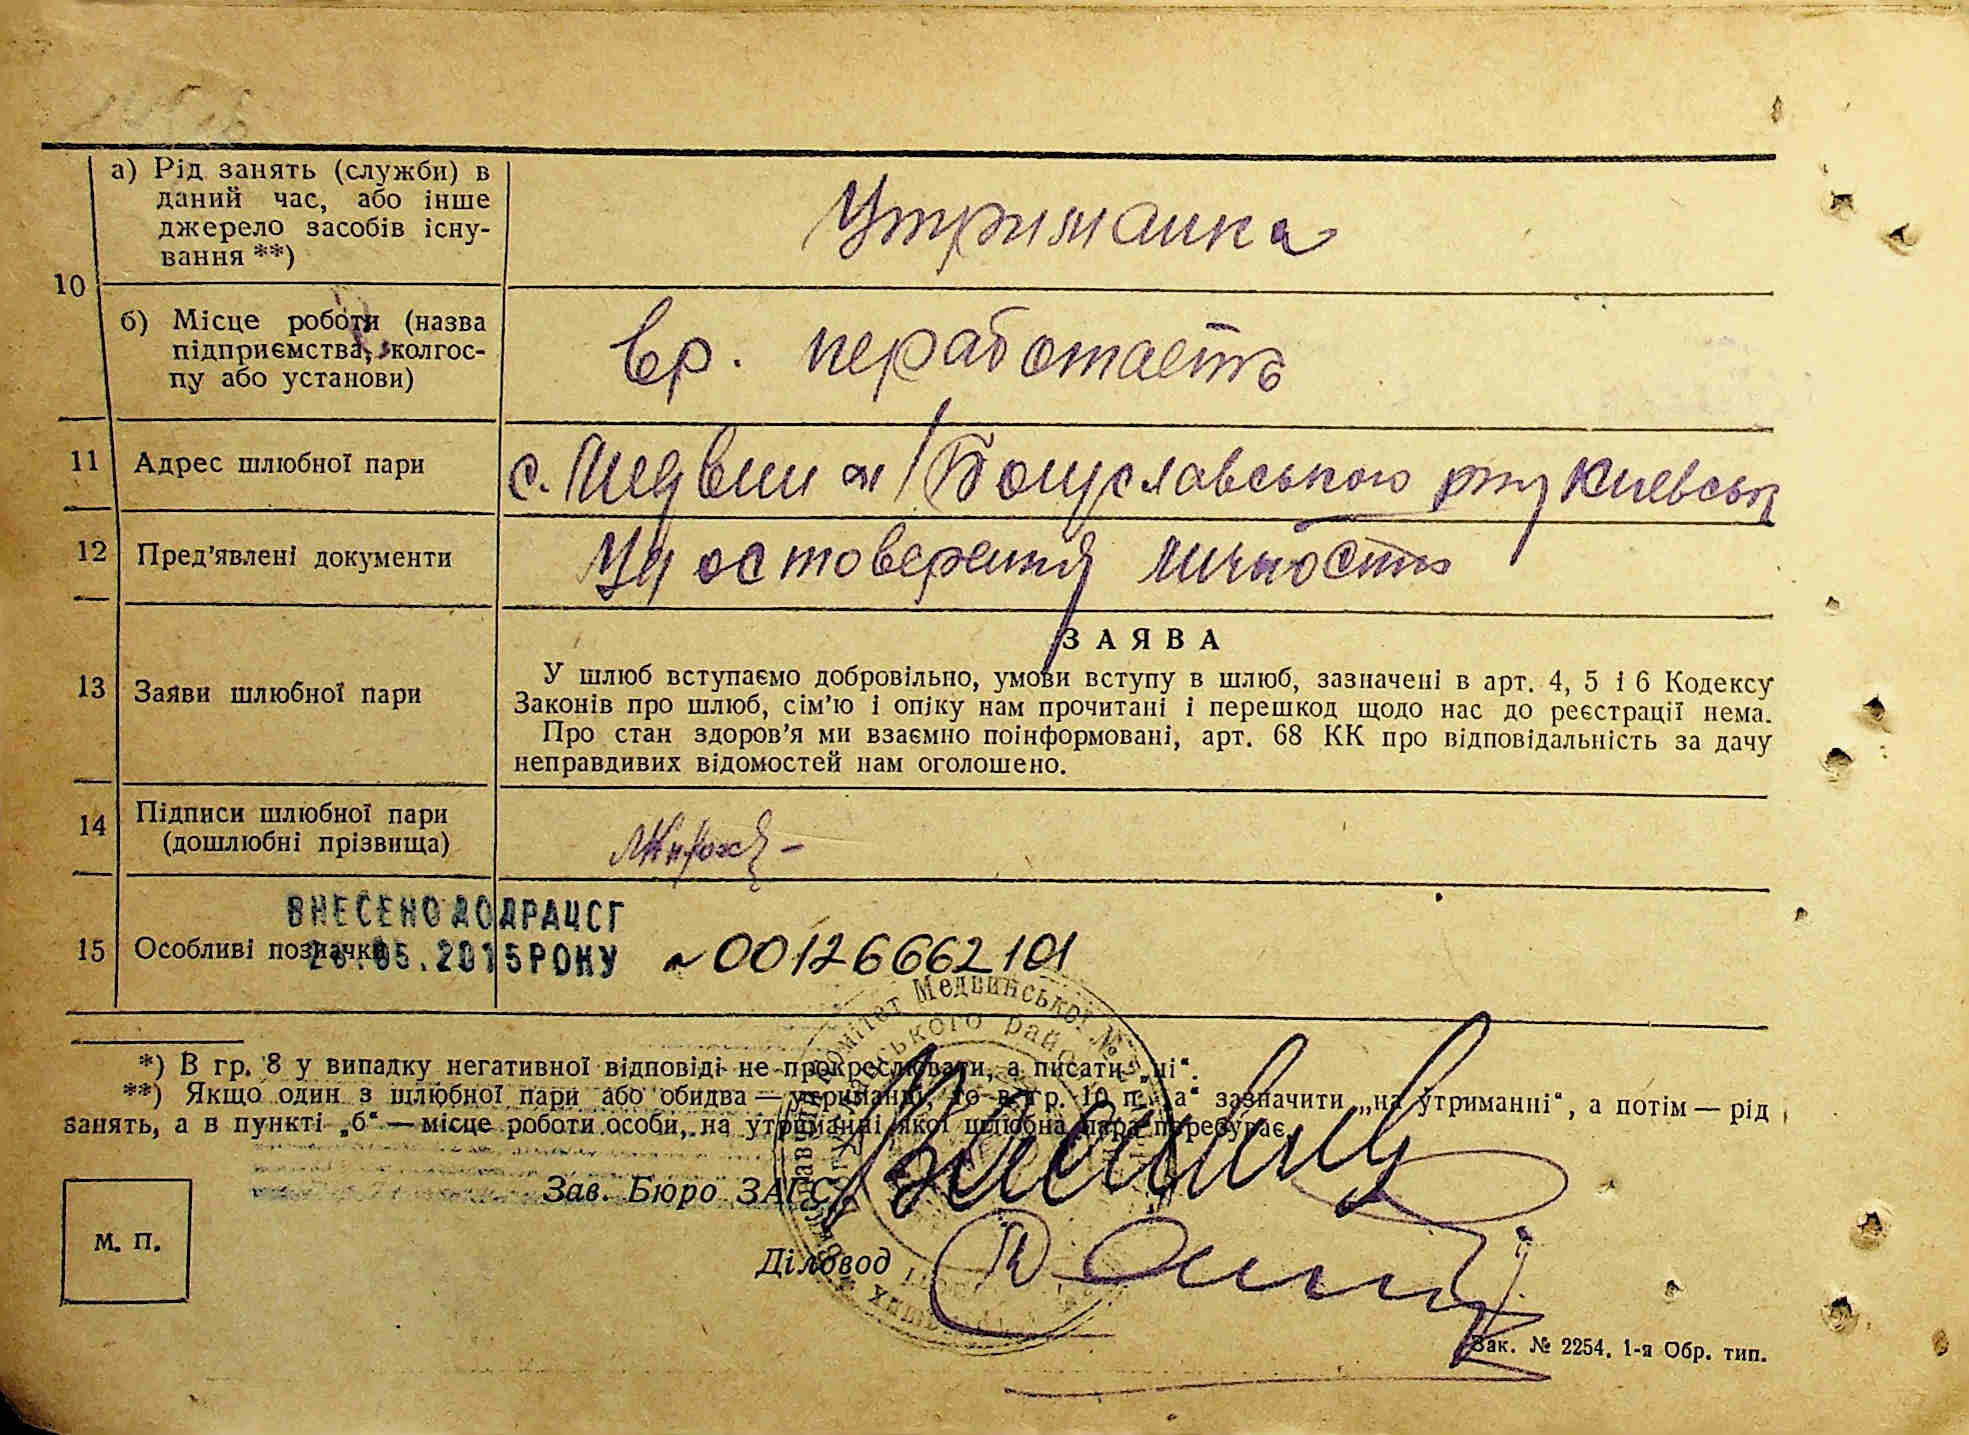 10
а) Рід занять (служби) в
даний час, або інше
джерело засобів існу-
вання **)
Утриманка
б) Місце роботи (назва
підприємства, колгос-
пу або установи)
вр. неработаетъ
11 Адрес шлюбної пари
с. Медвин Богуславського р-ну Киевськ
12 Пред'явлені документи
Удостоверения личность
13 Заяви шлюбної пари
ЗАЯВА
У шлюб вступаємо добровільно, умови вступу в шлюб, зазначені в арт. 4, 5 і 6 Кодексу
Законів про шлюб, сім'ю і опіку нам прочитані і перешкод щодо нас до реєстрації нема.
Про стан здоров'я ми взаємно поінформовані, арт. 68 КК про відповідальність за дачу
неправдивих відомостей нам оголошено.
14 Підписи шлюбної пари
(дошлюбні прізвища)
15 Особливі позначки
ВНЕСЕНО ДО ДРАЦСГ
.05.2015 РОКУ
00126662101
Медвинської
*) В гр. 8 у випадку негативної відповіді не прокреслювати, а писати „ні“.
**) Якщо один з шлюбної пари або обидва — утриманці, то в гр. 10 п. „а“ зазначити „на утриманні“, а потім — рід
занять, а в пункті „б“ — місце роботи особи, на утриманні якої шлюбна пара перебуває.
Зав. Бюро ЗАГС
М. П.
Діловод
Зак. № 2254. 1-я Обр. тип.